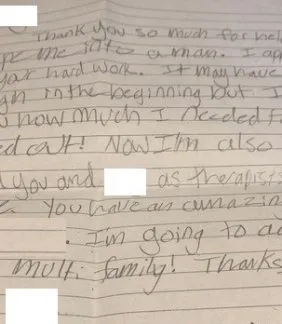 Thank you so much for hel
me into a man. I ap
your hard work. It may have
in the beginning but I
how much I needed
ed out! Now I'm also
you and as therapists
You have an amazin
. I'm going to a
multi family! Thanks